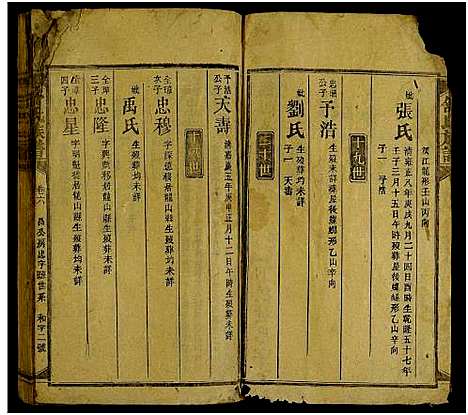 汉江龍形壬山丙向
妣 張氏
清雍正八年庚戌九月二十四日酉時生乾隆五十七年
壬子三月十五日午時歿葬屋後螺形乙山辛向
子一 予浩
十九世
忠瑞公子 予浩
生歿未詳葬屋後螺形乙山辛向
妣 劉氏
生歿葬均未詳
子一 天壽
二十世
予浩公子 天壽
清嘉慶五年庚申正月十二日午時生歿葬均未詳
十八世
全璋亥子 忠穆
字 移居龍山縣生歿葬均未詳
妣 禹氏
生歿葬均未詳
全璋三子 忠隆
字明 移居龍山縣生歿葬均未詳
全璋四子 忠星
字明 移居龍山縣生歿葬均未詳
卷六
昌公房忠字派世系
和字二號